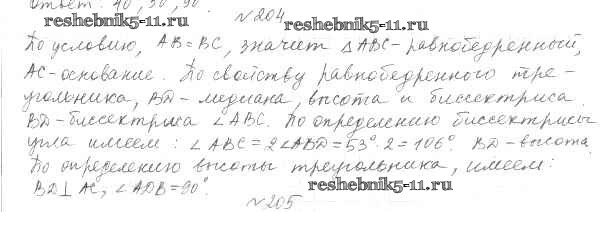 Ответ: 40°, 50°, 90°
№204
reshebnik5-11.ru
По условию, AB=BC, значит △ABC-равнобедренный,
AC-основание. По свойству равнобедренного тре-
угольника, BD-медиана, высота и биссектриса.
BD-биссектриса ∠ABC. По определению биссектрисы
угла имеем: ∠ABC=2∠ABD=53°·2=106°. BD-высота.
По определению высоты треугольника, имеем:
BD⊥AC, ∠ADB=90°.
reshebnik5-11.ru
№205